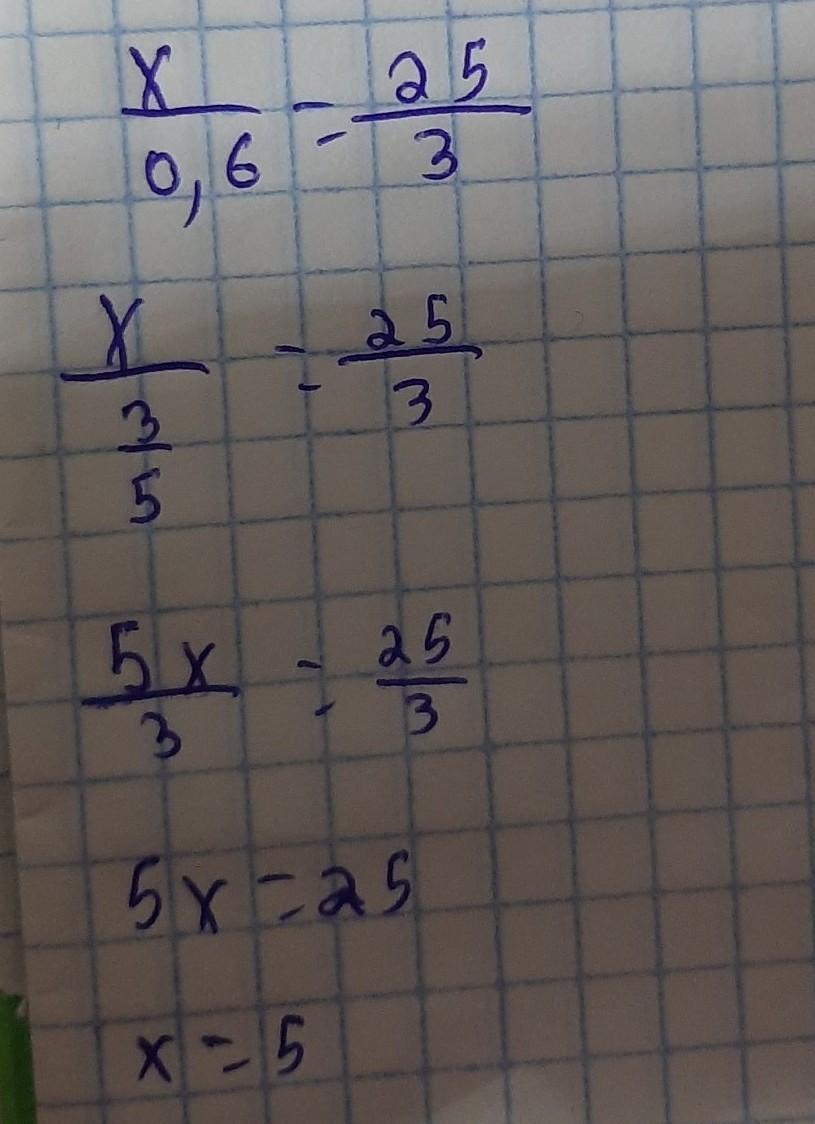 x/0,6 = 25/3
x/(3/5) = 25/3
5x/3 = 25/3
5x = 25
x = 5